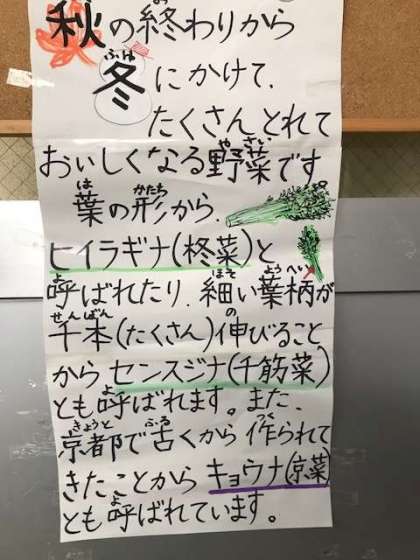 秋の終わりから
冬にかけて、
たくさんとれて
おいしくなる野菜です
葉の形から、
ヒイラギナ(柊菜)と
呼ばれたり、細い葉柄が
千本(たくさん)伸びること
からセンスジナ(千筋菜)
とも呼ばれます。また、
京都で古くから作られて
きたことからキョウナ(京菜)
とも呼ばれています。